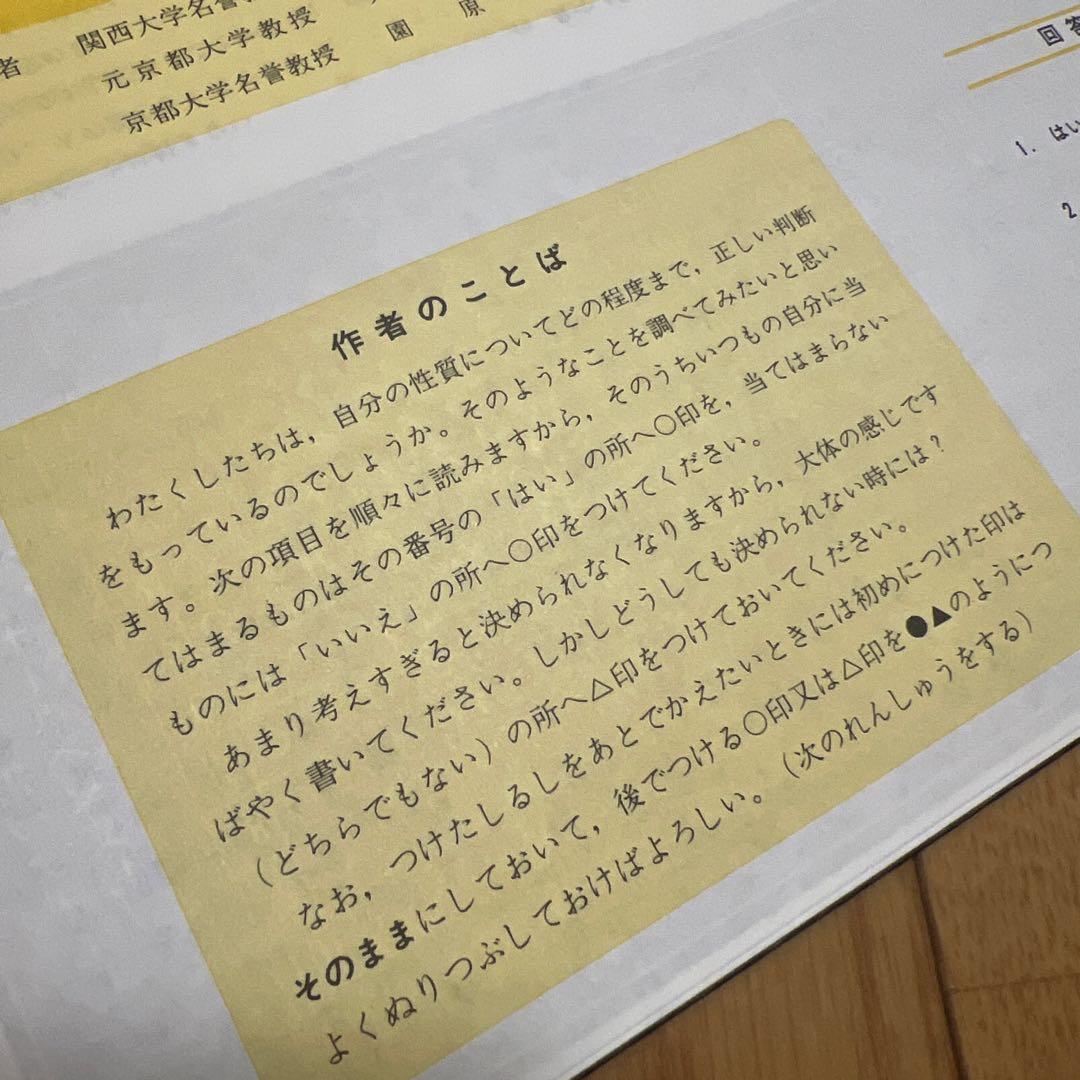 者 関西大学名誉
元京都大学教授
京都大学名誉教授 園原
回答
1. はい
2
作者のことば
わたくしたちは，自分の性質についてどの程度まで，正しい判断
をもっているのでしょうか。そのようなことを調べてみたいと思い
ます。次の項目を順々に読みますから，そのうちいつもの自分に当
てはまるものはその番号の「はい」の所へ〇印を，当てはまらない
ものには「いいえ」の所へ〇印をつけてください。
あまり考えすぎると決められなくなりますから，大体の感じです
ばやく書いてください。しかしどうしても決められない時には？
（どちらでもない）の所へ△印をつけておいてください。
なお，つけたしるしをあとでかえたいときには初めにつけた印は
そのままにしておいて，後でつける〇印又は△印を●▲のようにつ
よくぬりつぶしておけばよろしい。（次のれんしゅうをする）